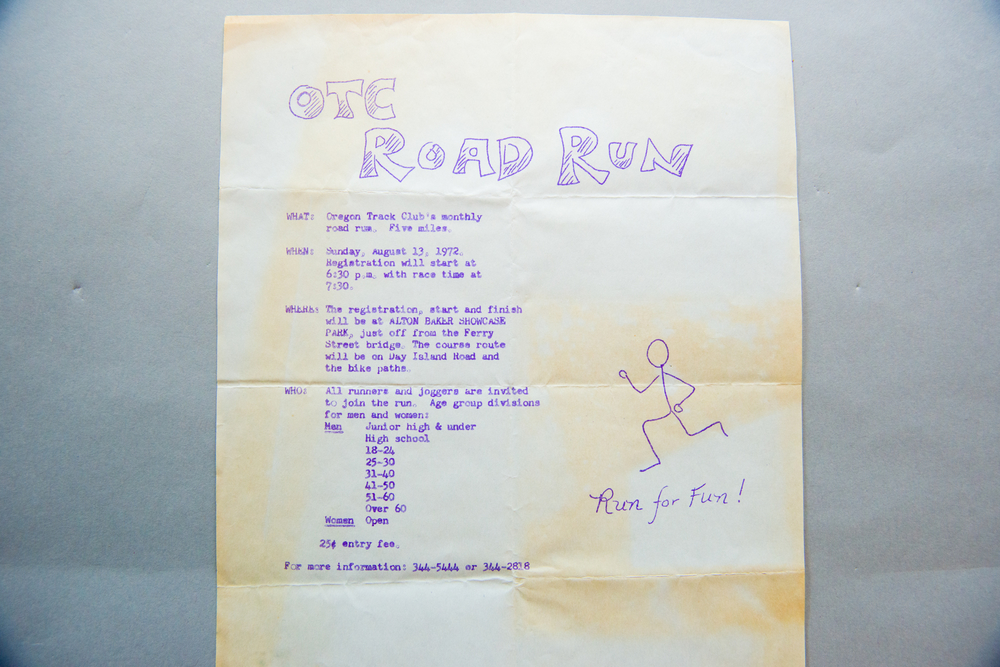 OTC
ROAD RUN
WHAT: Oregon Track Club's monthly
road run. Five miles.
WHEN: Sunday, August 13, 1972.
Registration will start at
6:30 p.m. with race time at
7:30.
WHERE: The registration, start and finish
will be at ALTON BAKER SHOWCASE
PARK, just off from the Ferry
Street bridge. The course route
will be on Day Island Road and
the bike paths.
WHO: All runners and joggers are invited
to join the run. Age group divisions
for men and women:
Men Junior high & under
High school
18-24
25-30
31-40
41-50
51-60
Over 60
Women Open
25¢ entry fee.
For more information: 344-5444 or 344-2818
Run for Fun!